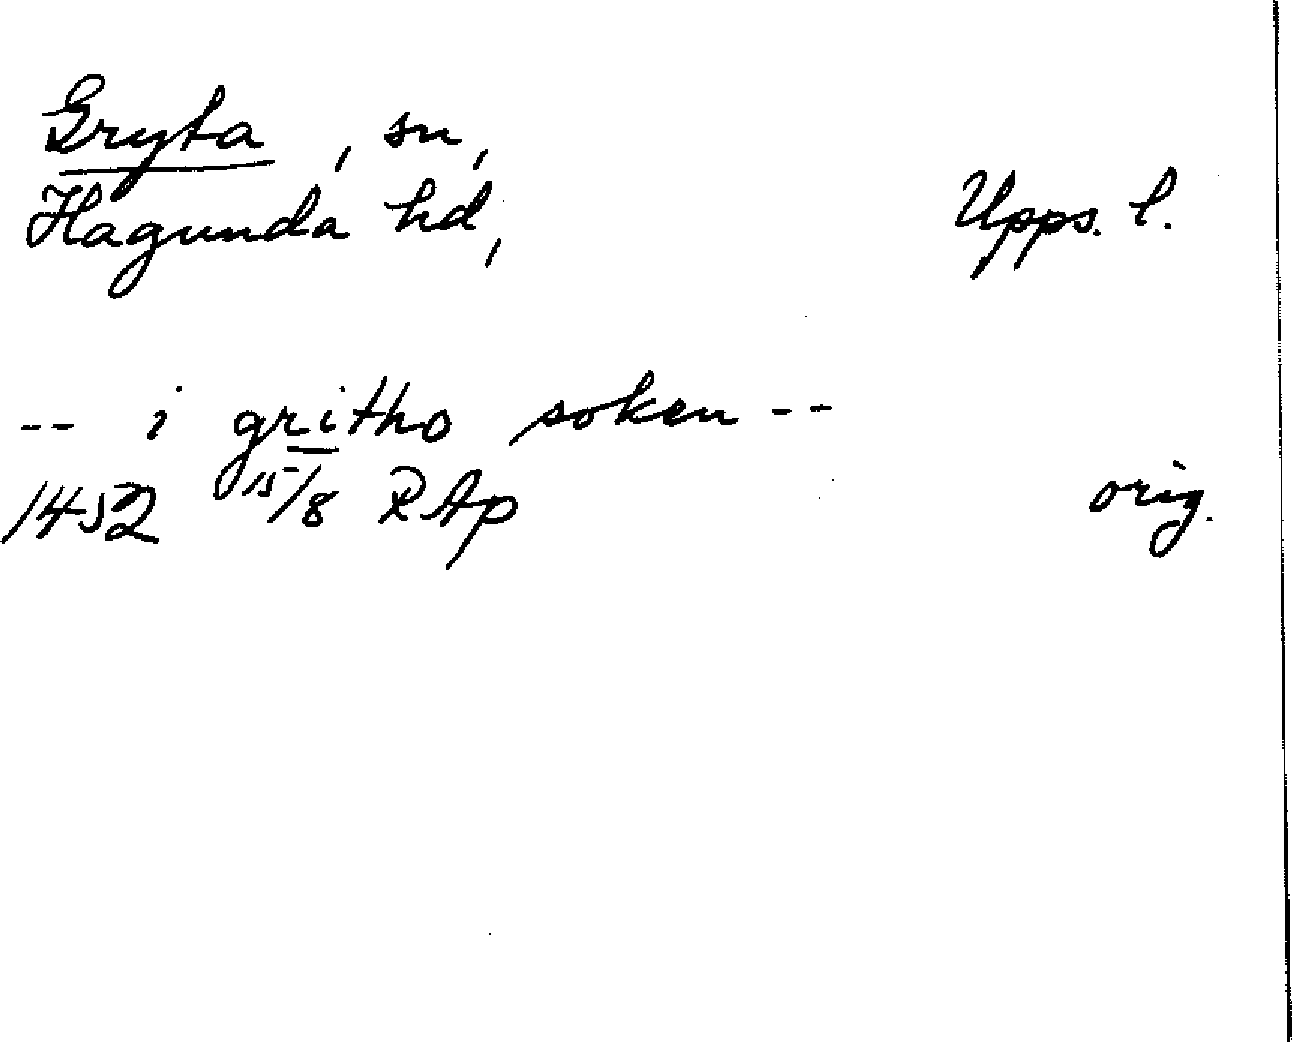 Gryta, sn,
Hagunda hd, Upps. l.
-- i gritho soken --
1452 15/8 RAp orig.